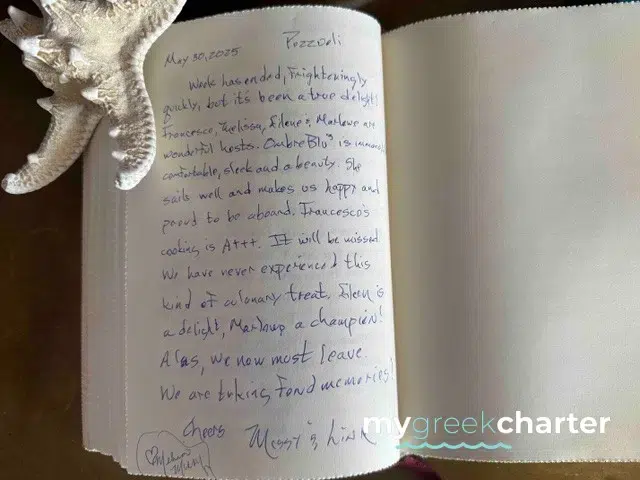 May 30, 2025 Pozzouli
Week has ended, frighteningly
quickly, but it's been a true delight!
Francesco, Melissa, Eileen & Marlowe are
wonderful hosts. OmbreBlu is
comfortable, sleek and a beauty. She
sails well and makes us happy and
proud to be aboard. Francesco's
cooking is A+++. It will be missed
We have never experienced this
kind of culunary treat. Eileen is
a delight, Marlowe a champion!
Alas, we now must leave.
We are taking fond memories!
Cheers
Missy & Link
mygreekcharter